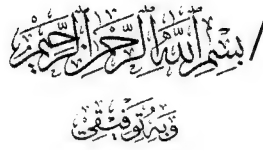 بِسْمِ اللَّهِ الرَّحْمَٰنِ الرَّحِيمِ
وَبِهِ تَوْفِيقِي